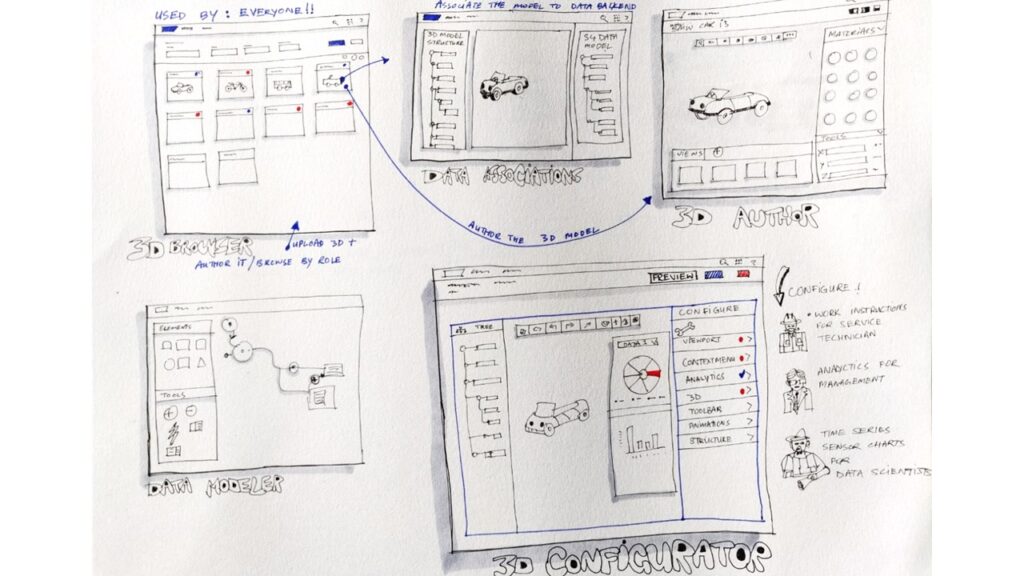 USED BY : EVERYONE!!
3D BROWSER
UPLOAD 3D +
AUTHOR IT / BROWSE BY ROLE
ASSOCIATE THE MODEL TO DATA BACKEND
3D MODEL
STRUCTURE
S4 DATA
MODEL
DATA ASSOCIATIONS
AUTHOR THE 3D MODEL
CAR 13
MATERIALS
TOOLS
X
Y
Z
VIEWS
3D AUTHOR
ELEMENTS
TOOLS
DATA MODELER
PREVIEW
TREE
DATA
CONFIGURE
VIEWPORT
CONTEXTMENU
ANALYTICS
3D
TOOLBAR
ANIMATIONS
STRUCTURE
3D CONFIGURATOR
CONFIGURE !
• WORK INSTRUCTIONS
FOR SERVICE
TECHNICIAN
ANALYTICS FOR
MANAGEMENT
TIME SERIES
SENSOR CHARTS
FOR
DATA SCIENTISTS